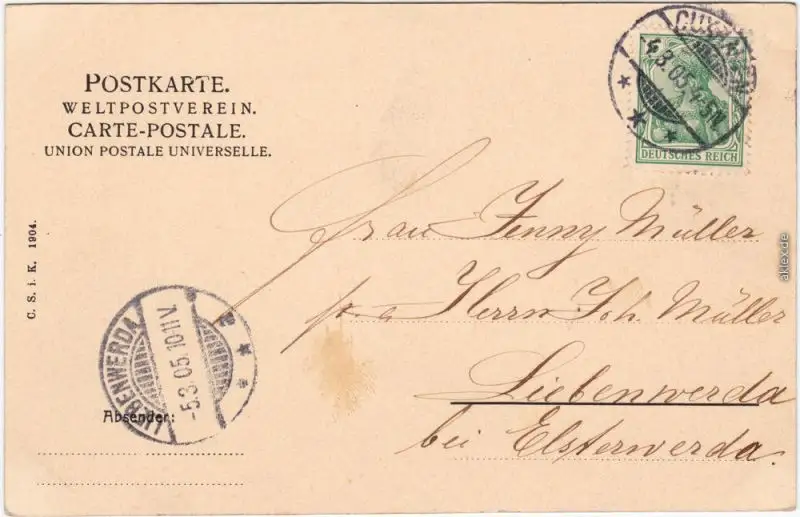 POSTKARTE.
WELTPOSTVEREIN.
CARTE-POSTALE.
UNION POSTALE UNIVERSELLE.
C. S. i. K. 1904.
4.3.05.4-5N.
DEUTSCHES REICH
Frau Jenny Müller
p. a Herrn Joh. Müller
Liebenwerda
bei Elsterwerda.
LIEBENWERDA
-5.3.05.10-11V.
Absender:
aklex.de